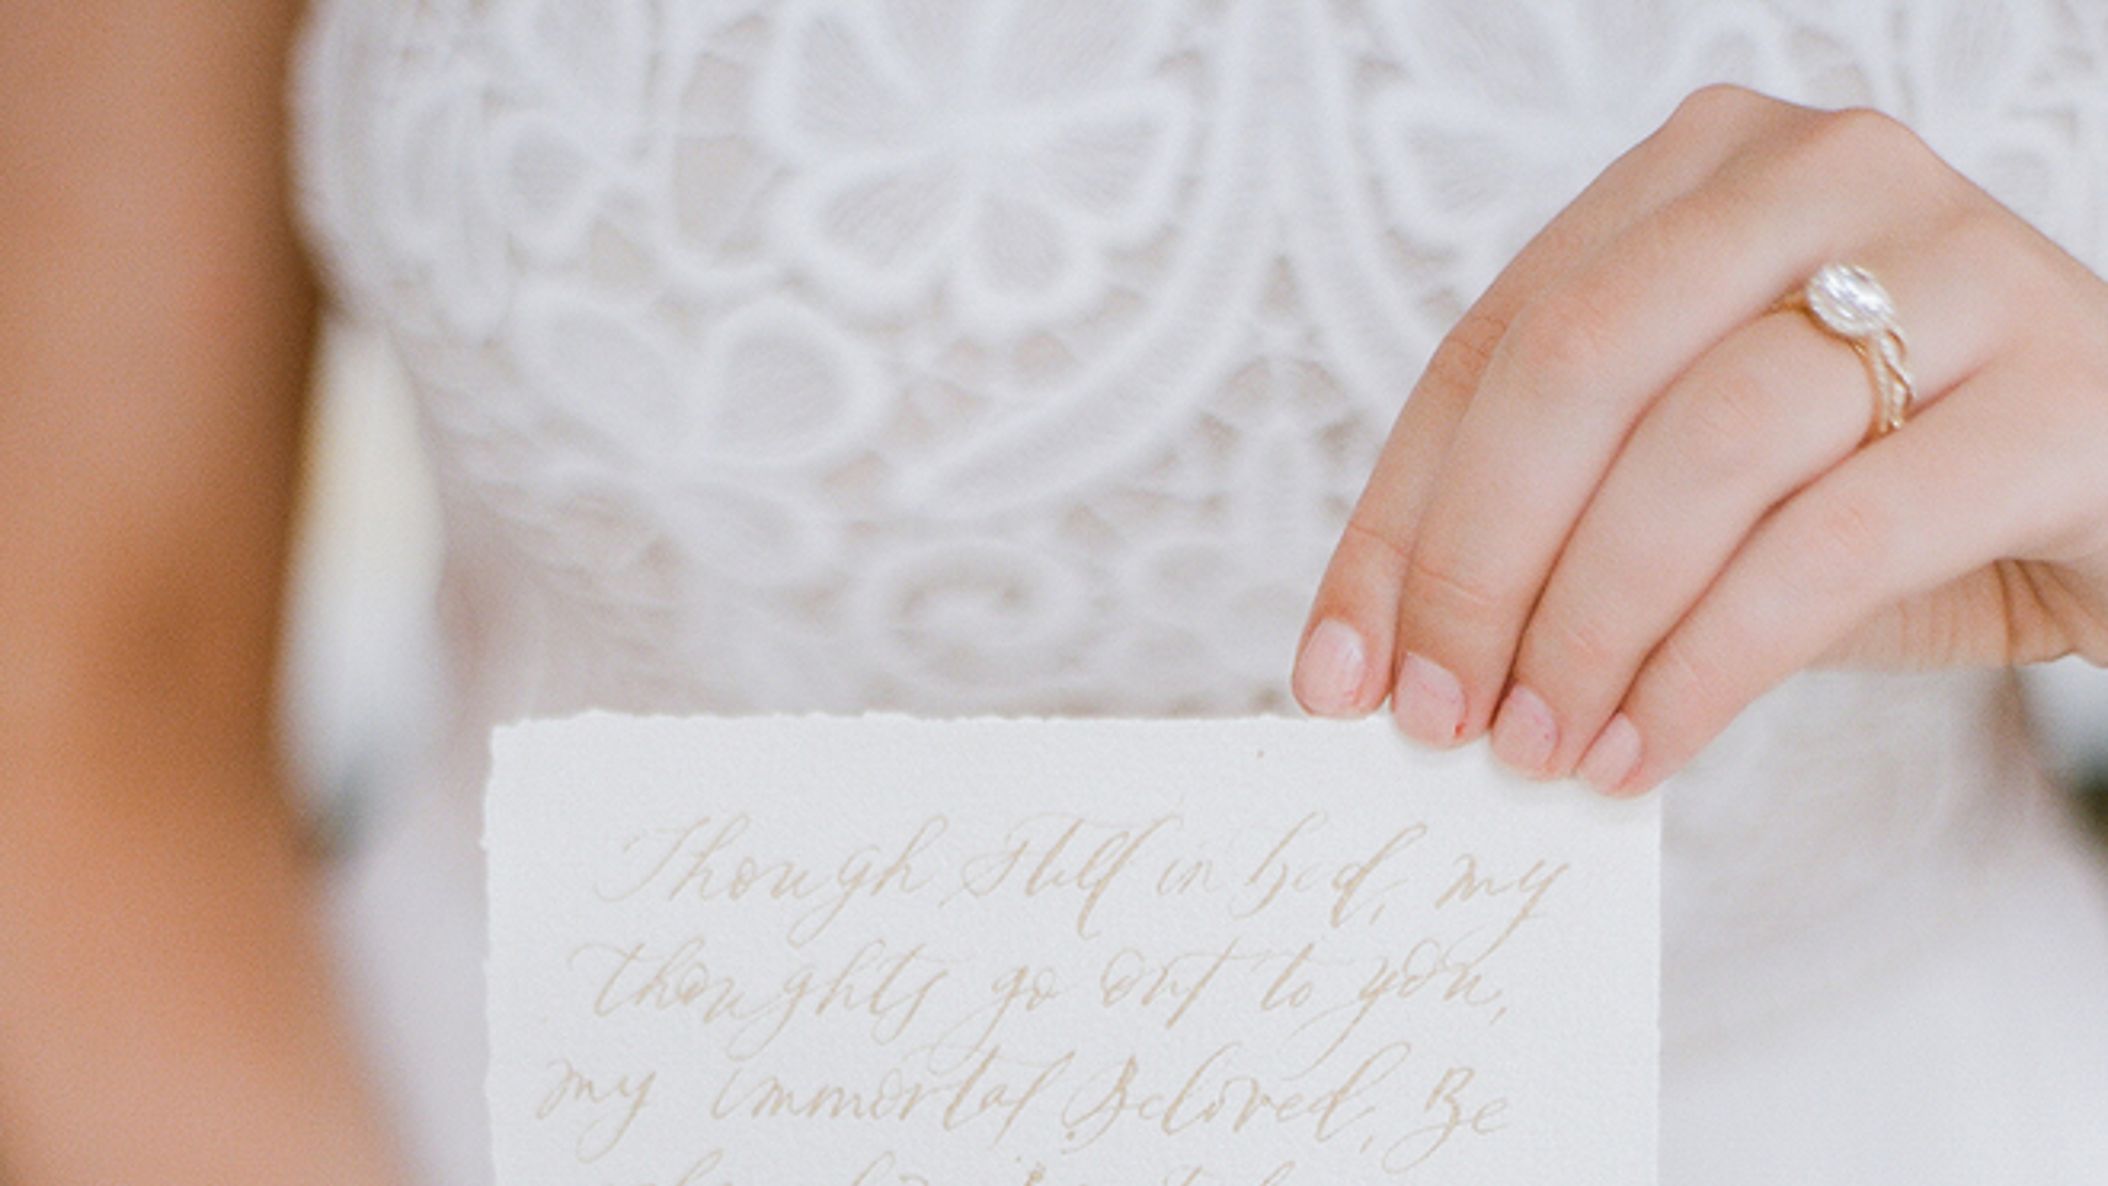 Though still in bed, my
thoughts go out to you,
my immortal Beloved, Be